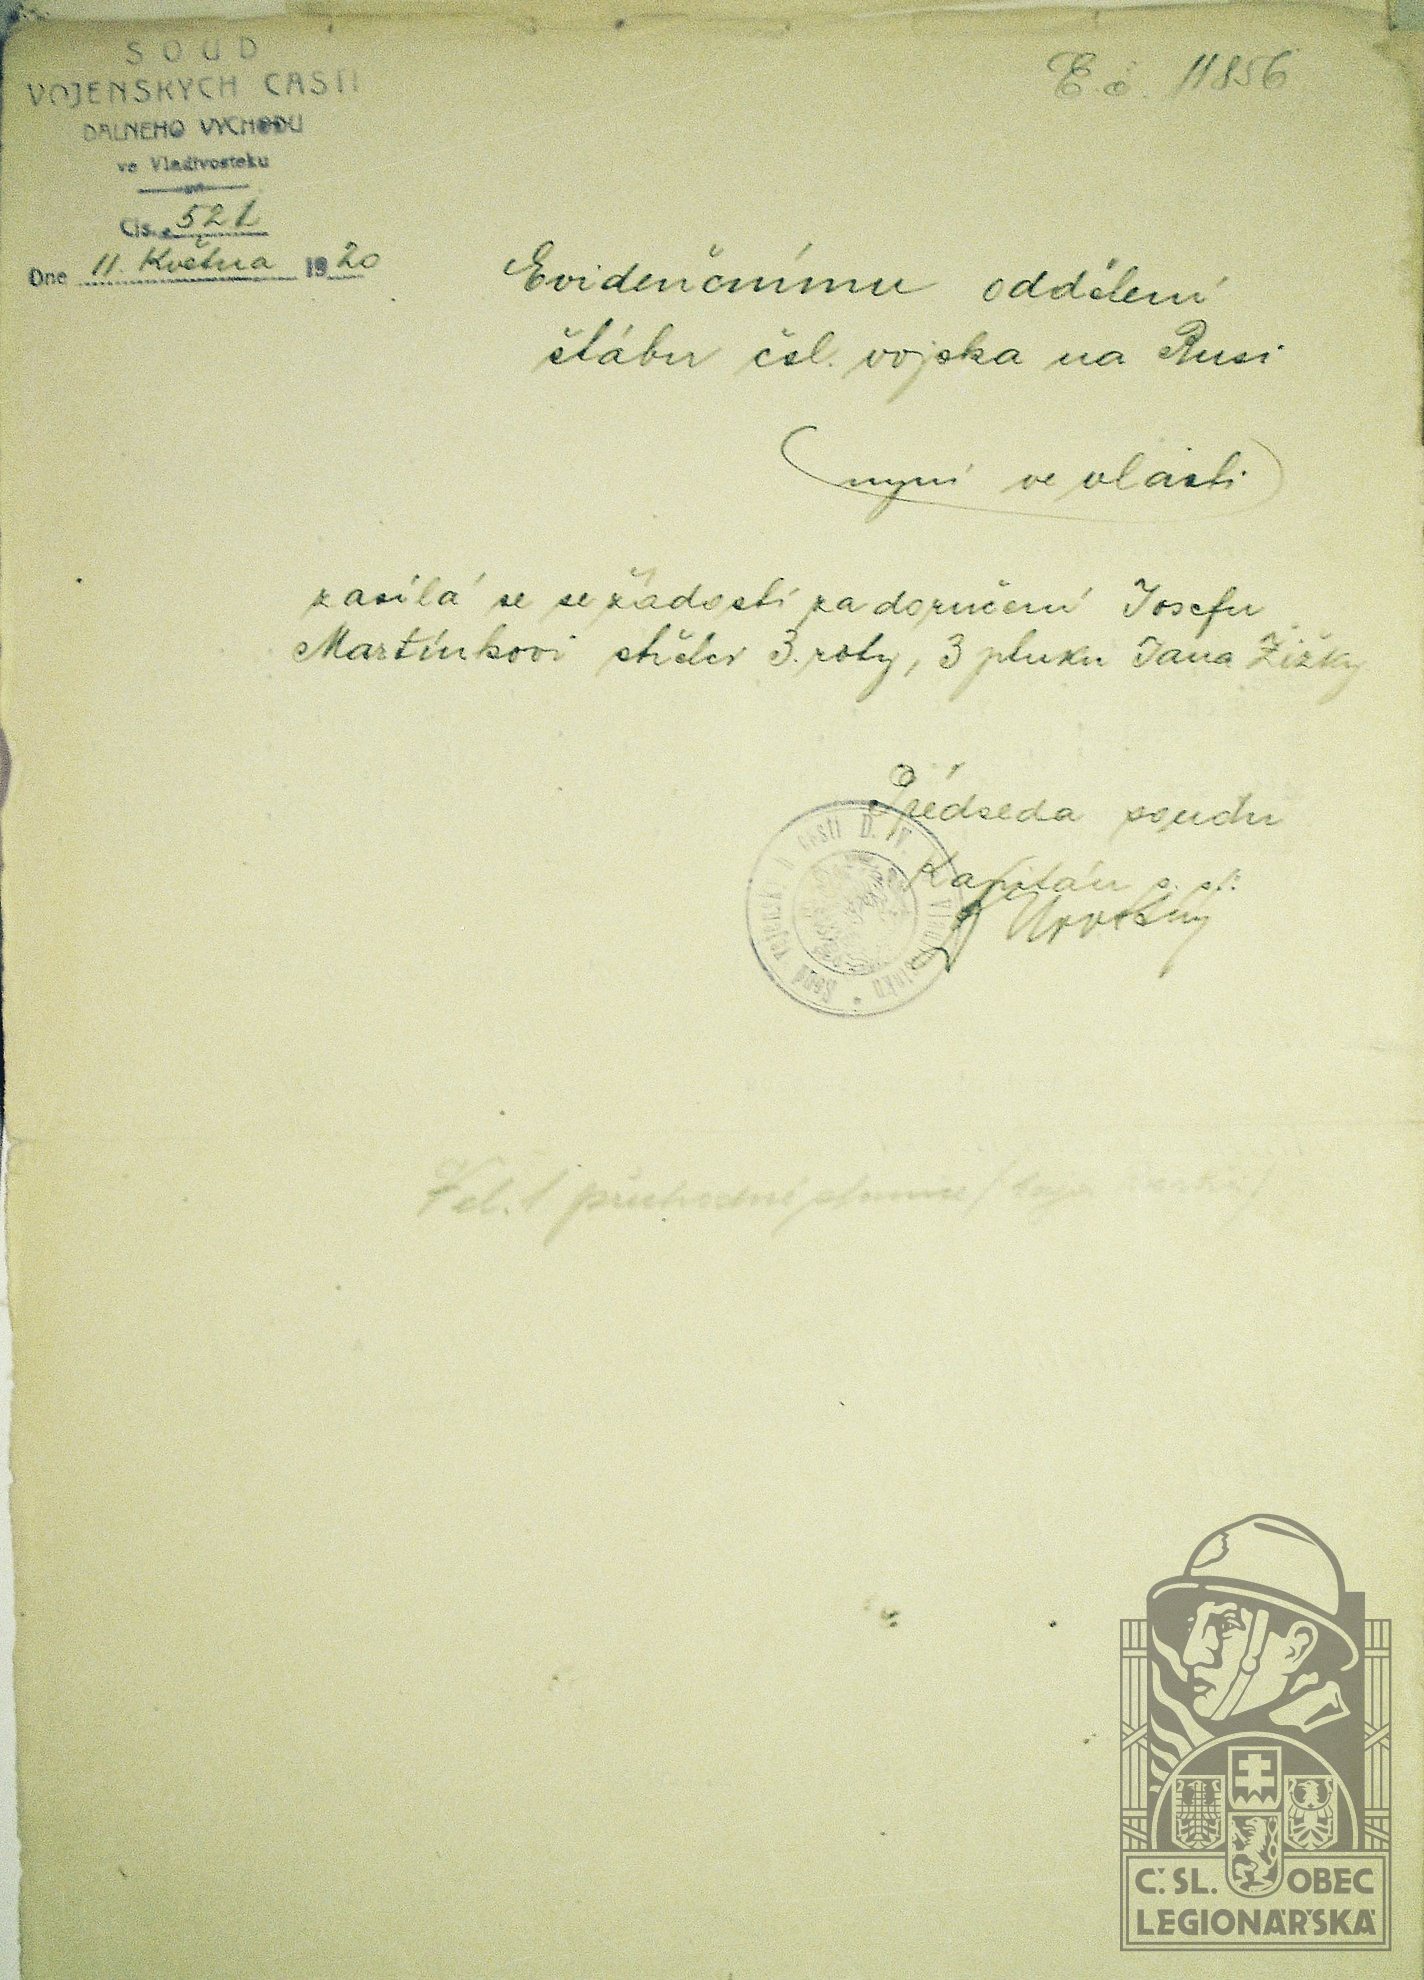 SOUD
VOJENSKYCH CASTI
DALNEHO VYCHODU
ve Vladivostoku
Čís. 521
Dne 11. Května 1920
E.č. 11856
Evidenčnímu oddělení
štábu čsl. vojska na Rusi
(nyní ve vlasti)
zasílá se se žádostí za doručení Josefu
Martínkovi střelci 3. roty, 3 pluku Jana Žižky
Předseda soudu
Kapitán
Soud vojensk. částí D. V. Vladivostoku
Vel. přechodné stanice
Č.SL. OBEC
LEGIONÁŘSKÁ